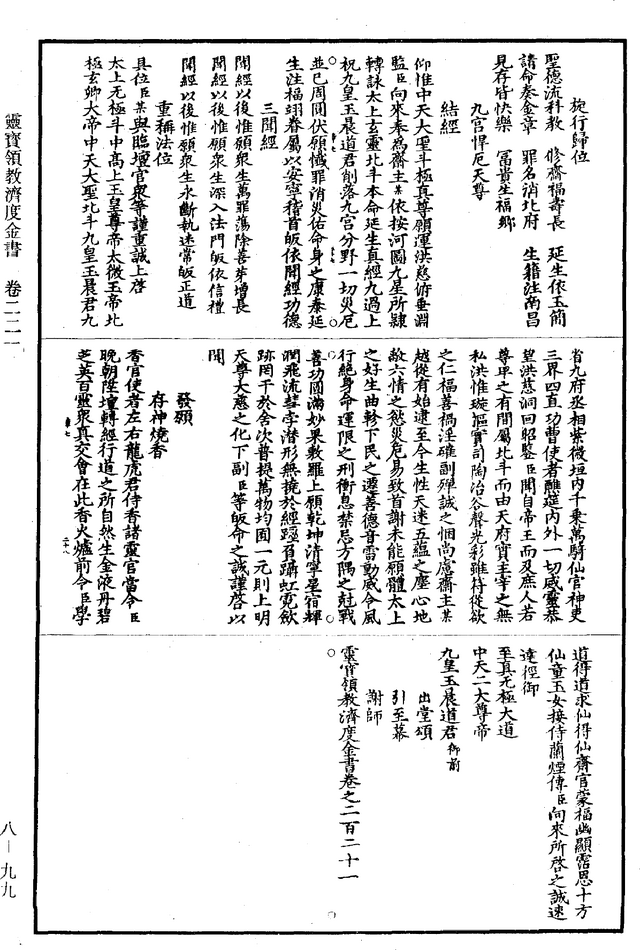 旋行歸位
聖德流科教　修齋福壽長　延生依玉簡
請命奏金章　罪名消北府　生籍注南昌
見存皆快樂　冨貴生福鄉
九宮悍厄天尊
結經
仰惟中天大聖斗極真尊願運洪慈俯垂淵
監臣向來奉為齋主某依按河圖九星所隸
轉誦太上玄靈北斗本命延生真經九過上
祝九皇玉晨道君削落九宮分野一切災厄
並已周圓伏願懺罪消災佑命身之康泰延
生注福翊眷屬以安寧稽首皈依開經功德
三聞經
聞經以後惟願眾生萬罪蕩除善芽增長
聞經以後惟願眾生深入法門皈依信禮
聞經以後惟願眾生永斷執迷常皈正道
重稱法位
具位臣某與臨壇官眾等謹重誠上啓
太上无極斗中高上玉皇尊帝太微玉帝北
極玄卿大帝中天大聖北斗九皇玉晨君九
省九府丞相紫微垣內千乘萬騎仙官神吏
三界四直功曹使者醮筵內外一切威靈恭
望洪慈洞回昭鑒臣聞自帝王而及庶人若
尊卑之有間屬北斗而由天府實主宰之無
私洪惟璇樞實司陶冶谷聲光彩雖持從欲
之仁福善禍淫確副殫誠之悃尚慮齋主某
越從有始逮至今生性天迷五蘊之塵心地
故六情之慾災危易致首謝未能願體太上
之好生曲軫下民之遷善德音雷動威令風
行絕身命運限之刑衝息禁忌方隅之尅戰
善功圓滿妙果敷羅上願乾坤清寧星宿輝
潤飛流彗孛潛形無撓於經躔肓躡虹霓歛
跡罔干於舍次普提萬物均囿一元則上明
天尊大慈之化下副臣等皈命之誠謹啓以
聞
發願
存神燒香
香官使者左右龍虎君侍香諸靈官當令臣
晚朝陞壇轉經行道之所自然生金液丹碧
芝英百靈眾真交會在此香火爐前令臣學
道得道求仙得仙齋官蒙福幽顯霑恩十方
仙童玉女接侍蘭煙傳臣向來所啓之誠速
達徑御
至真无極大道
中天二大尊帝
九皇玉晨道君御前
出堂頌
引至幕
謝師
靈寶領教濟度金書卷之二百二十一
靈寶領教濟度金書　卷二二一
八－九九